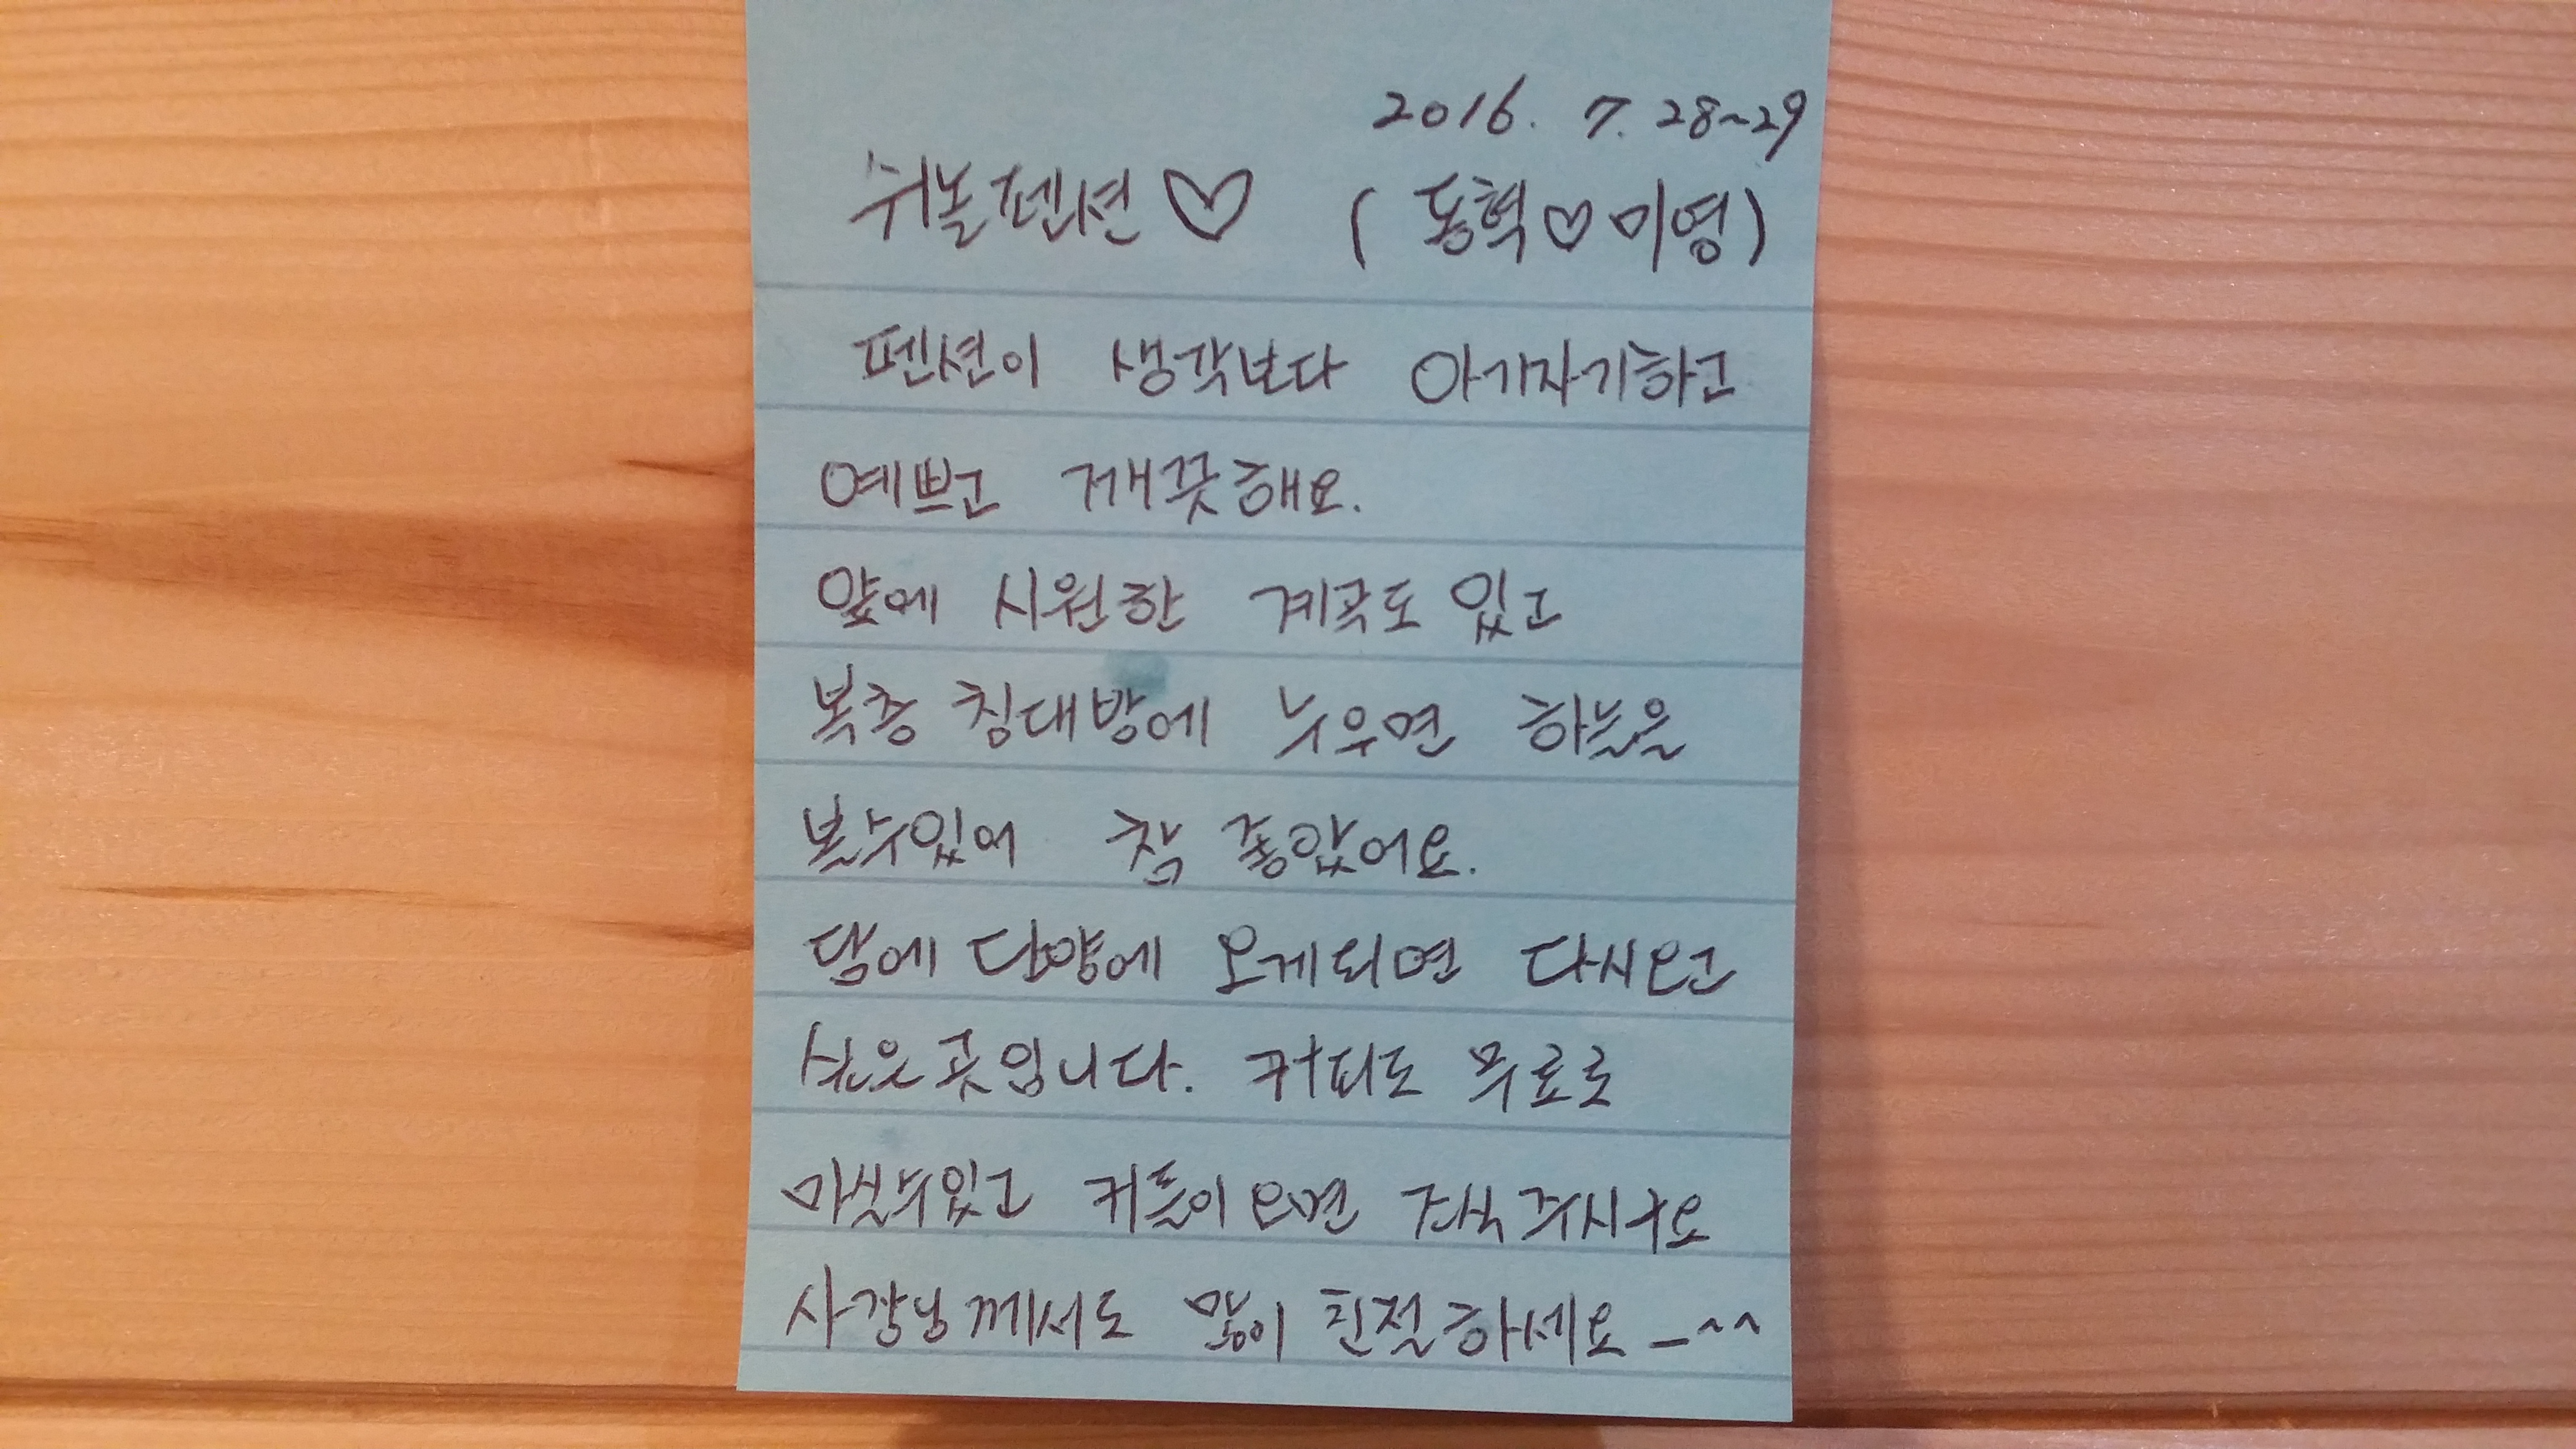 2016. 7. 28~29
쉬놀펜션♡ (동혁♡미영)
펜션이 생각보다 아기자기하고
예쁘고 깨끗해요.
앞에 시원한 계곡도 있고
복층 침대방에 누우면 하늘을
볼수있어 참 좋았어요.
담에 단양에 오게되면 다시오고
싶은 곳입니다. 커피도 무료로
마실수있고 커플이오면 조식주시구요
사장님께서도 많이 친절하세요_^^